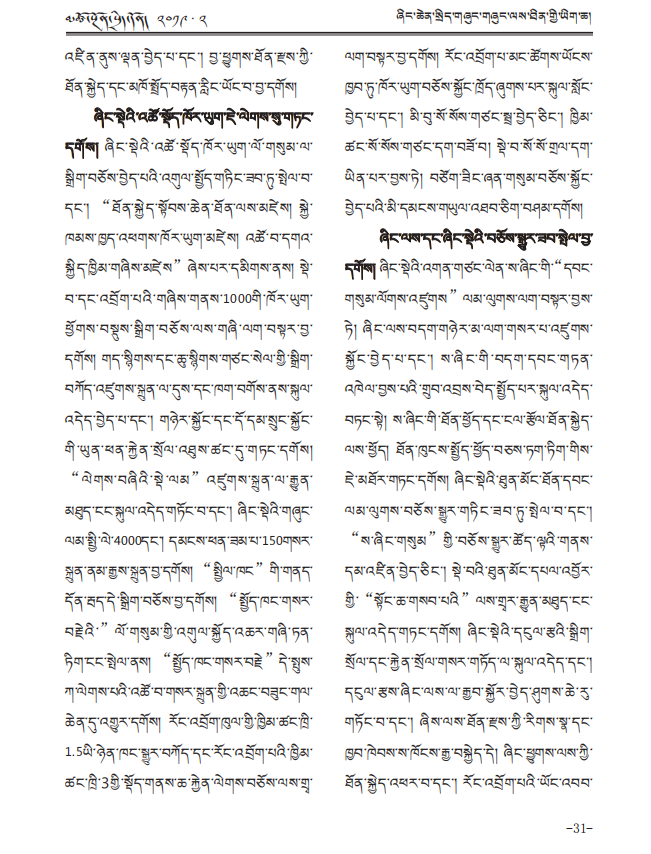 མཚོ་སྔོན་པོའི་དཔེ་ཁྲིད། ༢༠༡༩ · ༢
ཞིང་ཆེན་སྲིད་གཞུང་གཞུང་ལས་ཐིན་གྱི་ཡིག་ཆ།
འཛིན་ནུས་ལྡན་བྱེད་པ་དང་། བྱ་ཕྱུགས་ཐོན་རྫས་ཀྱི་
ཐོན་སྐྱེད་དང་མཁོ་སྤྲོད་བརྟན་རླིང་ཡོང་བ་བྱ་དགོས།
ཞིང་སྡེའི་འཚོ་སྡོད་ཁོར་ཡུག་ཇེ་ལེགས་སུ་གཏང་
དགོས། ཞིང་སྡེའི་འཚོ་སྡོད་ཁོར་ཡུག་ལོ་གསུམ་ལ་
སྒྲིག་བཅོས་བྱེད་པའི་འགུལ་སྤྱོད་གཏིང་ཟབ་ཏུ་སྤེལ་བ་
དང་། “ཐོན་སྐྱེད་སྟོབས་ཆེན་ཐོན་ལས་མཛེས། སྐྱེ་
ཁམས་ཁྱད་འཕགས་ཁོར་ཡུག་མཛེས། འཚོ་བ་དགའ་
སྐྱིད་ཁྱིམ་གཞིས་མཛེས” ཞེས་པར་དམིགས་ནས། སྡེ་
བ་དང་འབྲོག་པའི་གཞིས་གནས་1000གི་ཁོར་ཡུག་
ཕྱོགས་བསྡུས་སྒྲིག་བཅོས་ལས་གཞི་ལག་བསྟར་བྱ་
དགོས། གད་སྙིགས་དང་ཆུ་སྙིགས་གཙང་སེལ་གྱི་སྒྲིག་
བཀོད་འཛུགས་སྐྲུན་ལ་དུས་དང་ཁག་བགོས་ནས་སྐུལ་
འདེད་བྱེད་པ་དང་། གཉེར་སྐྱོང་དང་དོ་དམ་སྲུང་སྐྱོང་
གི་ཡུན་ཕན་རྐྱེན་སྲོལ་འཐུས་ཚང་དུ་གཏང་དགོས།
“ལེགས་བཞིའི་སྡེ་ལམ” འཛུགས་སྐྲུན་ལ་རྒྱུན་
མཐུད་ངང་སྐུལ་འདེད་གཏོང་བ་དང་། ཞིང་སྡེའི་གཞུང་
ལམ་སྤྱི་ལེ་4000དང་། དམངས་ཕན་ཟམ་པ་150གསར་
སྐྲུན་ནམ་རྒྱས་སྐྲུན་བྱ་དགོས། “སྤྱིལ་ཁང” གི་གནད་
དོན་རྦད་དེ་སྒྲིག་བཅོས་བྱ་དགོས། “སྤྱོད་ཁང་གསར་
བརྗེའི་” ལོ་གསུམ་གྱི་འགུལ་སྐྱོད་འཆར་གཞི་ཏན་
ཏིག་ངང་སྤེལ་ནས། “སྤྱོད་ཁང་གསར་བརྗེ” དེ་སྤུས་
ཀ་ལེགས་པའི་འཚོ་བ་གསར་སྐྲུན་གྱི་འཆང་བཟུང་གལ་
ཆེན་དུ་འགྱུར་དགོས། རོང་འབྲོག་ཁུལ་གྱི་ཁྱིམ་ཚང་ཁྲི་
1.5ཡི་ཉེན་ཁང་སྒྱུར་བཀོད་དང་རོང་འབྲོག་པའི་ཁྱིམ་
ཚང་ཁྲི་3གྱི་སྡོད་གནས་ཆ་རྐྱེན་ལེགས་བཅོས་ལས་གྲྭ་
ལག་བསྟར་བྱ་དགོས། རོང་འབྲོག་པ་མང་ཚོགས་ཡོངས་
ཁྱབ་ཏུ་ཁོར་ཡུག་བཅོས་སྐྱོང་ཁྲོད་ཞུགས་པར་སྐུལ་སློང་
བྱེད་པ་དང་། མི་བུ་སོ་སོས་གཙང་སྦྲ་བྱེད་ཅིང་། ཁྱིམ་
ཚང་སོ་སོས་གཙང་དག་བཟོ་བ། སྡེ་བ་སོ་སོ་གྲལ་དག་
ཡིན་པར་བྱས་ཏེ། བཙོག་ཟིང་ཞན་གསུམ་བཅོས་སྐྱོང་
བྱེད་པའི་མི་དམངས་གཡུལ་འཐབ་ཅིག་བཤམ་དགོས།
ཞིང་ལས་དང་ཞིང་སྡེའི་བཅོས་སྒྱུར་ཟབ་སྤེལ་བྱ་
དགོས། ཞིང་སྡེའི་འགན་གཙང་ལེན་ས་ཞིང་གི་“དབང་
གསུམ་ལོགས་འཛུགས” ལམ་ལུགས་ལག་བསྟར་བྱས་
ཏེ། ཞིང་ལས་བདག་གཉེར་མ་ལག་གསར་པ་འཛུགས་
སྐྱོང་བྱེད་པ་དང་། ས་ཞིང་གི་བདག་དབང་གཏན་
འཁེལ་བྱས་པའི་གྲུབ་འབྲས་བེད་སྤྱོད་པར་སྐུལ་འདེད་
བཏང་སྟེ། ས་ཞིང་གི་ཐོན་ཕྱོད་དང་ངལ་རྩོལ་ཐོན་སྐྱེད་
ལས་ཕྱོད། ཐོན་ཁུངས་སྤྱོད་ཕྱོད་བཅས་ཏག་ཏིག་གིས་
ཇེ་མཐོར་གཏང་དགོས། ཞིང་སྡེའི་ཐུན་མོང་ཐོན་དབང་
ལམ་ལུགས་བཅོས་སྒྱུར་གཏིང་ཟབ་ཏུ་སྤེལ་བ་དང་།
“ས་ཞིང་གསུམ” གྱི་བཅོས་སྒྱུར་ཚོད་ལྟའི་གནས་
དམ་འཛིན་བྱེད་ཅིང་། སྡེ་བའི་ཐུན་མོང་དཔལ་འབྱོར་
གྱི་ “སྟོང་ཆ་གསབ་པའི” ལས་གྲྭར་རྒྱུན་མཐུད་ངང་
སྐུལ་འདེད་གཏང་དགོས། ཞིང་སྡེའི་དངུལ་རྩའི་སྒྲིག་
སྲོལ་དང་རྐྱེན་སྲོལ་གསར་གཏོད་ལ་སྐུལ་འདེད་དང་།
དངུལ་རྩས་ཞིང་ལས་ལ་རྒྱབ་སྐྱོར་བྱེད་ཤུགས་ཆེ་རུ་
གཏོང་བ་དང་། ཞིས་ལས་ཐོན་རྫས་ཀྱི་རིགས་སྣ་དང་
ཁྱབ་ཁེབས་ས་ཁོངས་རྒྱ་བསྐྱེད་དེ། ཞིང་ཕྱུགས་ལས་ཀྱི་
ཐོན་སྐྱེད་འཕར་བ་དང་། རོང་འབྲོག་པའི་ཡོང་འབབ་
–31–